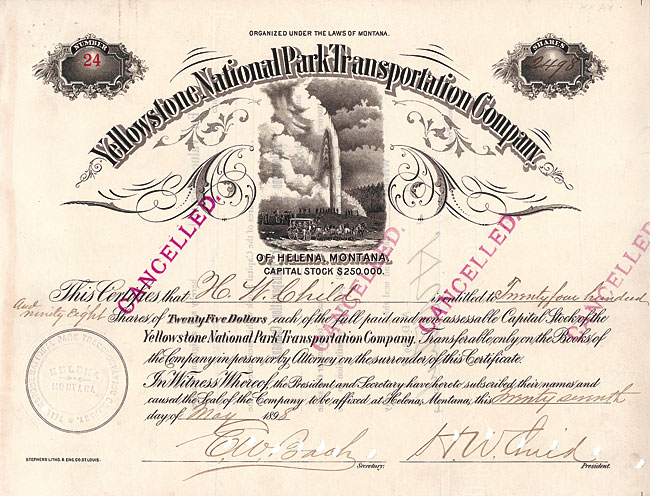 ORGANIZED UNDER THE LAWS OF MONTANA.
NUMBER
24
SHARES
2498
Yellowstone National Park Transportation Company,
OF HELENA, MONTANA.
CAPITAL STOCK $250.000.
CANCELLED.
CANCELLED.
CANCELLED.
This Certifies that H. W. Child is entitled to Twenty four hundred
and ninety eight Shares of Twenty Five Dollars each of the full paid and non-assessable Capital Stock of the
Yellowstone National Park Transportation Company. Transferable only on the Books of
the Company in person or by Attorney on the surrender of this Certificate.
In Witness Whereof, the President and Secretary have hereto subscribed their names and
caused the Seal of the Company to be affixed at Helena, Montana, this twenty seventh
day of May 1898
HELENA
MONTANA
E. W. Bach
Secretary.
H. W. Child
President.
STEPHENS LITHO. & ENG. CO. ST. LOUIS.